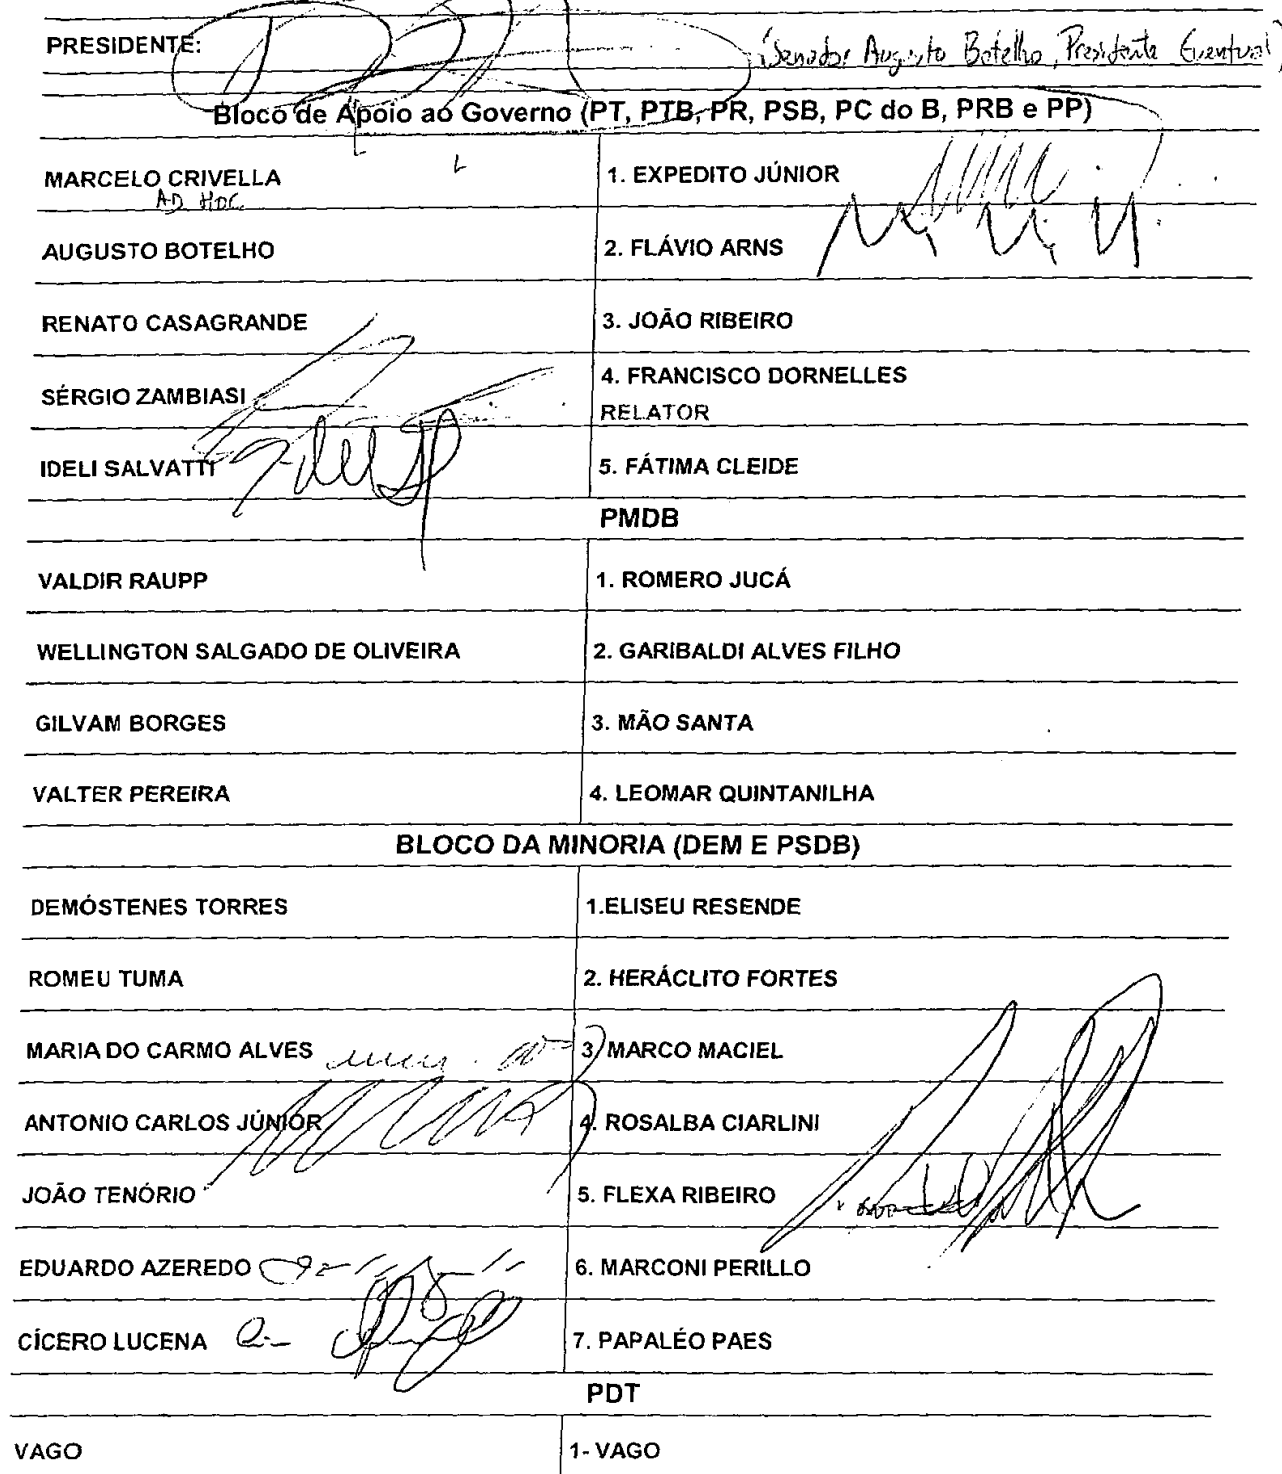 PRESIDENTE: (Senador Augusto Botelho, Presidente Eventual)
Bloco de Apoio ao Governo (PT, PTB, PR, PSB, PC do B, PRB e PP)
MARCELO CRIVELLA 1. EXPEDITO JÚNIOR
AD HOC
AUGUSTO BOTELHO 2. FLÁVIO ARNS
RENATO CASAGRANDE 3. JOÃO RIBEIRO
SÉRGIO ZAMBIASI 4. FRANCISCO DORNELLES
RELATOR
IDELI SALVATTI 5. FÁTIMA CLEIDE
PMDB
VALDIR RAUPP 1. ROMERO JUCÁ
WELLINGTON SALGADO DE OLIVEIRA 2. GARIBALDI ALVES FILHO
GILVAM BORGES 3. MÃO SANTA
VALTER PEREIRA 4. LEOMAR QUINTANILHA
BLOCO DA MINORIA (DEM E PSDB)
DEMÓSTENES TORRES 1.ELISEU RESENDE
ROMEU TUMA 2. HERÁCLITO FORTES
MARIA DO CARMO ALVES 3 MARCO MACIEL
ANTONIO CARLOS JÚNIOR 4. ROSALBA CIARLINI
JOÃO TENÓRIO 5. FLEXA RIBEIRO
EDUARDO AZEREDO 6. MARCONI PERILLO
CÍCERO LUCENA 7. PAPALÉO PAES
PDT
VAGO 1- VAGO